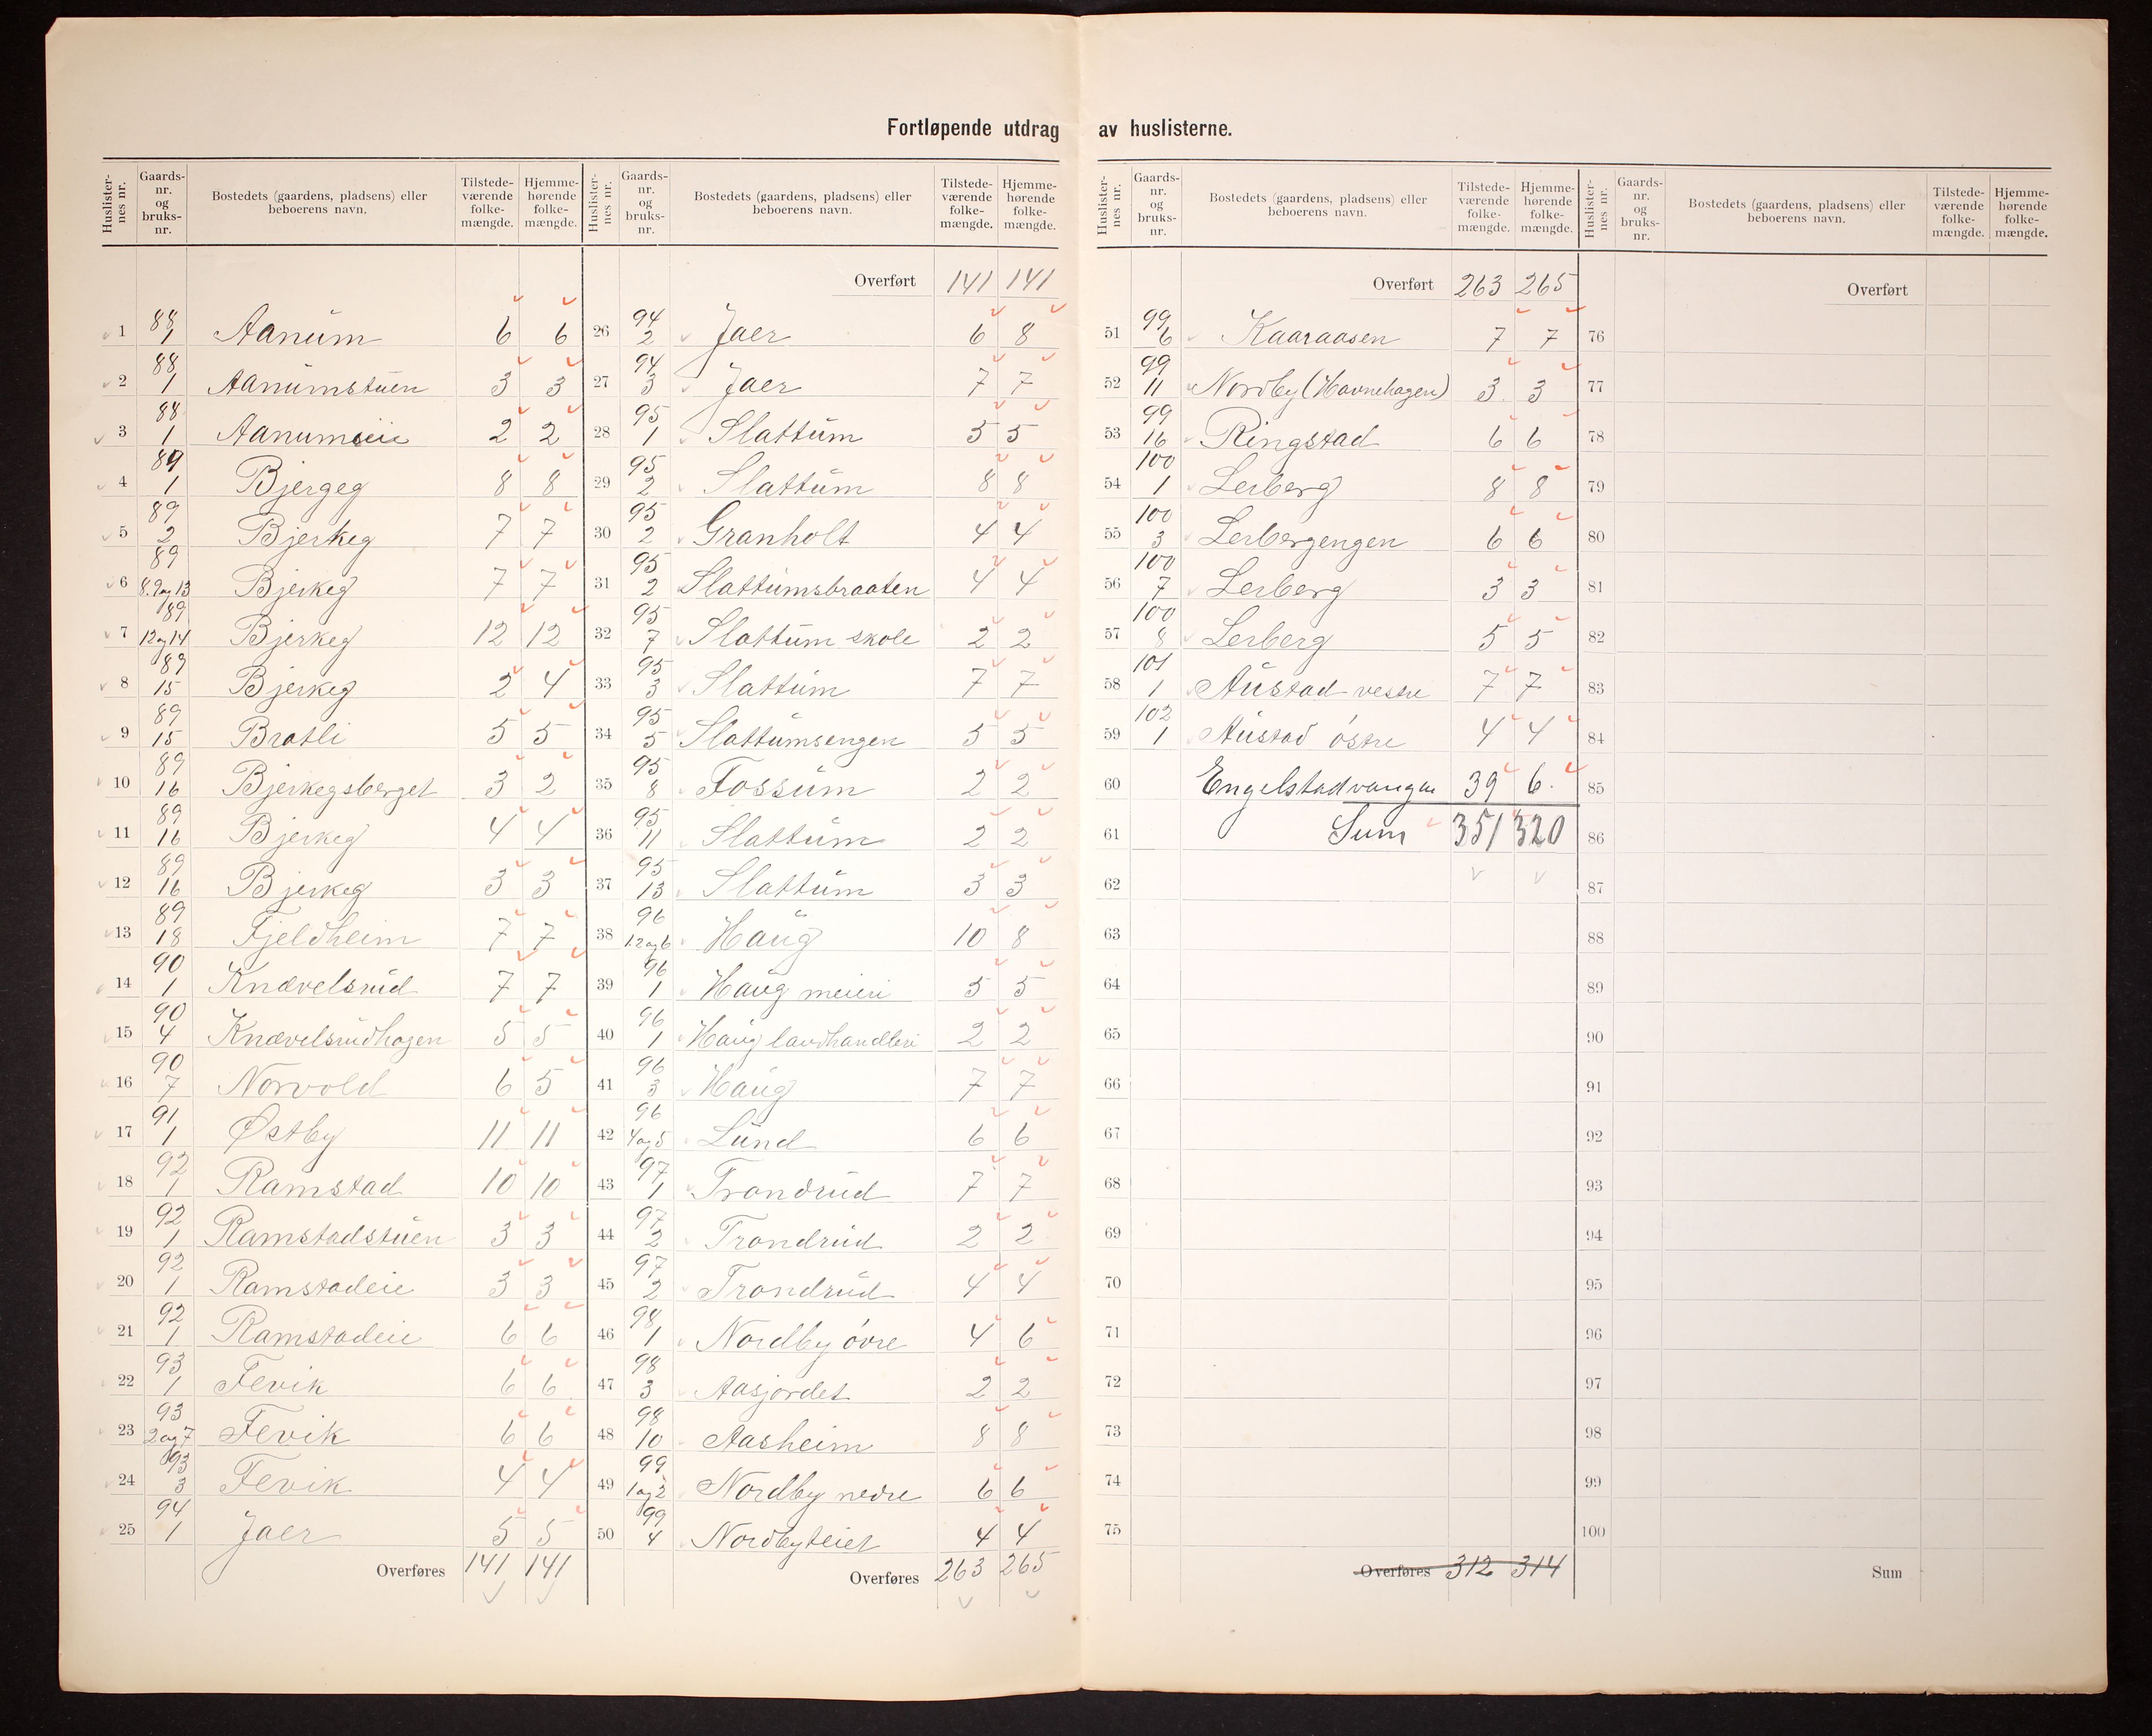 Fortløpende utdrag av huslisterne.
Huslisternes nr. Gaards-nr. og bruks-nr. Bostedets (gaardens, pladsens) eller beboerens navn. Tilstede-værende folke-mængde. Hjemme-hørende folke-mængde.
1 88 1 Aanum 6 6
2 88 1 Aanumstuen 3 3
3 88 1 Aanumeie 2 2
4 89 1 Bjergeg 8 8
5 89 2 Bjerkeg 7 7
6 89 8.9og13 Bjerkeg 7 7
7 89 12og14 Bjerkeg 12 12
8 89 15 Bjerkeg 2 4
9 89 15 Bratli 5 5
10 89 16 Bjerkegsberget 3 2
11 89 16 Bjerkeg 4 4
12 89 16 Bjerkeg 3 3
13 89 18 Fjeldheim 7 7
14 90 1 Knævelsrud 7 7
15 90 4 Knævelsrudhagen 5 5
16 90 7 Norvold 6 5
17 91 1 Østby 11 11
18 92 1 Ramstad 10 10
19 92 1 Ramstadstuen 3 3
20 92 1 Ramstadeie 3 3
21 92 1 Ramstadeie 6 6
22 93 1 Fevik 6 6
23 93 2og7 Fevik 6 6
24 93 3 Fevik 4 4
25 94 1 Jaer 5 5
Overføres 141 141
Huslisternes nr. Gaards-nr. og bruks-nr. Bostedets (gaardens, pladsens) eller beboerens navn. Tilstede-værende folke-mængde. Hjemme-hørende folke-mængde.
Overført 141 141
26 94 2 Jaer 6 8
27 94 3 Jaer 7 7
28 95 1 Slattum 5 5
29 95 2 Slattum 8 8
30 95 2 Granholt 4 4
31 95 2 Slattumsbraaten 4 4
32 95 7 Slattum skole 2 2
33 95 3 Slattum 7 7
34 95 5 Slattumsengen 5 5
35 95 8 Fossum 2 2
36 95 11 Slattum 2 2
37 95 13 Slattum 3 3
38 96 1.2og6 Haug 10 8
39 96 1 Haug meieri 5 5
40 96 1 Haug landhandleri 2 2
41 96 3 Haug 7 7
42 96 4og5 Lund 6 6
43 97 1 Trondrud 7 7
44 97 2 Trondrud 2 2
45 97 2 Trondrud 4 4
46 98 1 Nordby övre 4 6
47 98 3 Aasjordet 2 2
48 98 10 Aasheim 8 8
49 99 1og2 Nordby nedre 6 6
50 99 4 Nordbyteiet 4 4
Overføres 263 265
Huslisternes nr. Gaards-nr. og bruks-nr. Bostedets (gaardens, pladsens) eller beboerens navn. Tilstede-værende folke-mængde. Hjemme-hørende folke-mængde.
Overført 263 265
51 99 6 Kaaraasen 7 7
52 99 11 Nordby (Havnehagen) 3 3
53 99 16 Ringstad 6 6
54 100 1 Lerberg 8 8
55 100 3 Lerbergengen 6 6
56 100 7 Lerberg 3 3
57 100 8 Lerberg 5 5
58 101 1 Austad vestre 7 7
59 102 1 Austad östre 4 4
60 Engelstadvangen 39 6.
61 Sum 351 320
62
63
64
65
66
67
68
69
70
71
72
73
74
75
Overføres 312 314
Huslisternes nr. Gaards-nr. og bruks-nr. Bostedets (gaardens, pladsens) eller beboerens navn. Tilstede-værende folke-mængde. Hjemme-hørende folke-mængde.
Overført
76
77
78
79
80
81
82
83
84
85
86
87
88
89
90
91
92
93
94
95
96
97
98
99
100
Sum